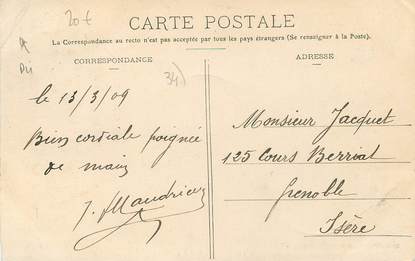 20€
CARTE POSTALE
La Correspondance au recto n'est pas acceptée par tous les pays étrangers (Se renseigner à la Poste).
CORRESPONDANCE
ADRESSE
34)
le 13/3/09
Bien cordiale poignée
de main
Monsieur Jacquet
125 Cours Berriat
Grenoble
Isère